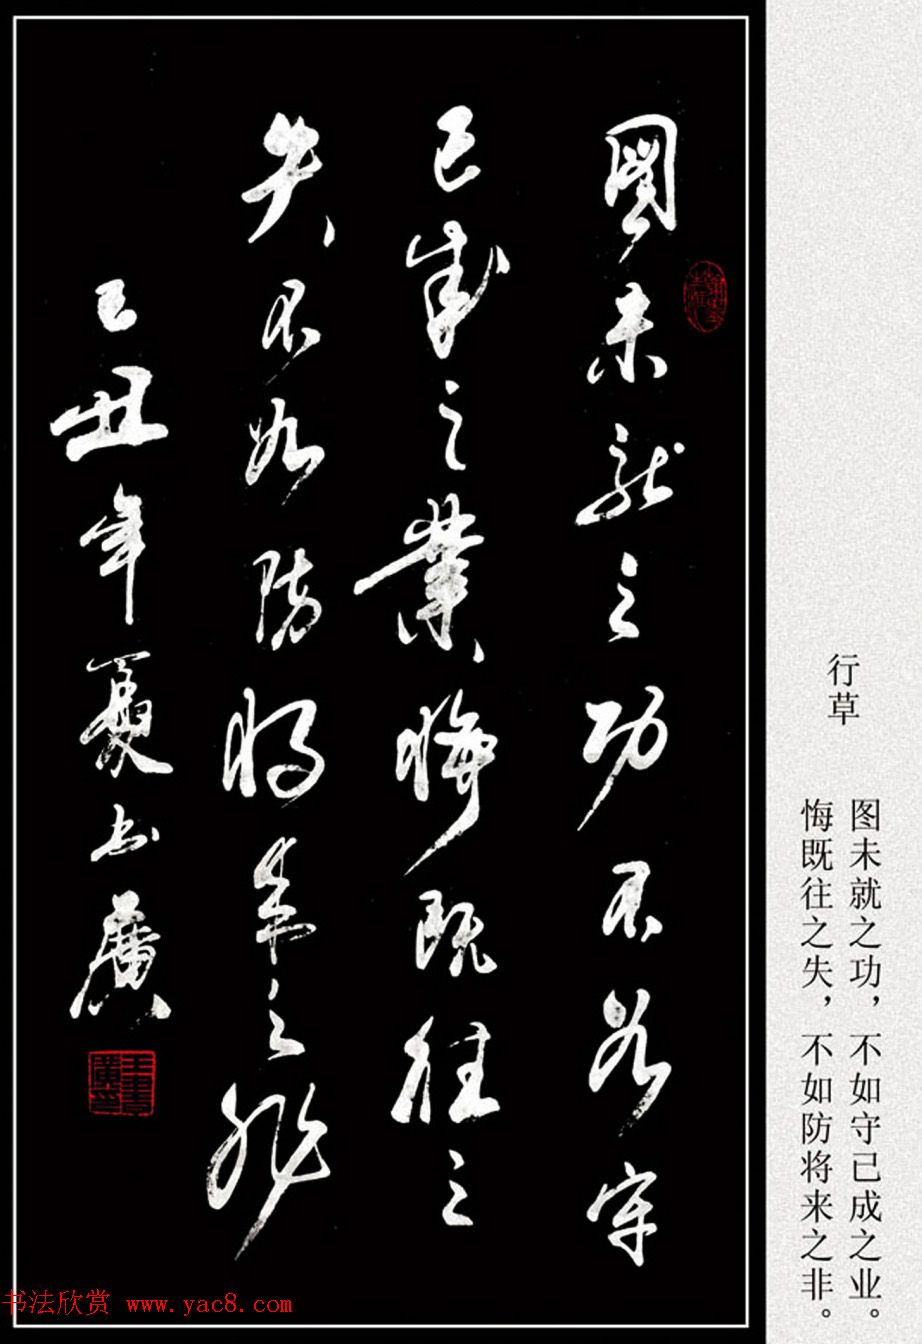 圖未就之功不如守
已成之業悔既往之
失不如防将来之非
己丑年夏书廣
王書廣印
行草
图未就之功，不如守已成之业。
悔既往之失，不如防将来之非。
书法欣赏 www.yac8.com